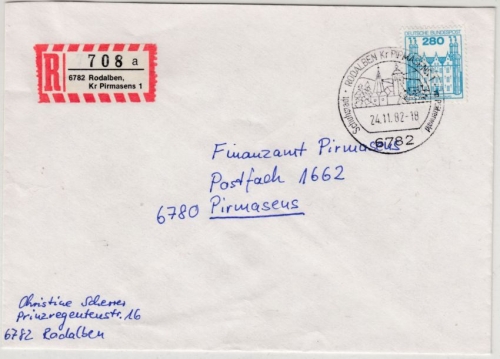 R 708 a
6782 Rodalben,
Kr Pirmasens 1
DEUTSCHE BUNDESPOST
280
RODALBEN Kr PIRMASENS
24.11.82-18
6782
Finanzamt Pirmasens
Postfach 1662
6780 Pirmasens
Christine Scherrer
Prinzregentenstr. 16
6782 Rodalben